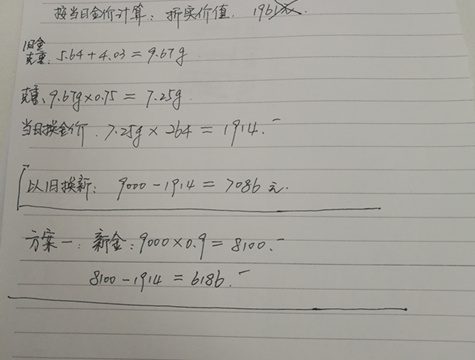 按当日金价计算：折实价值，196
旧金克重：5.64+4.03=9.67g
克重：9.67g×0.75=7.25g
当日换金价：7.25g×264=1914.-
以旧换新：9000-1914=7086元.
方案一：新金：9000×0.9=8100.-
8100-1914=6186.-